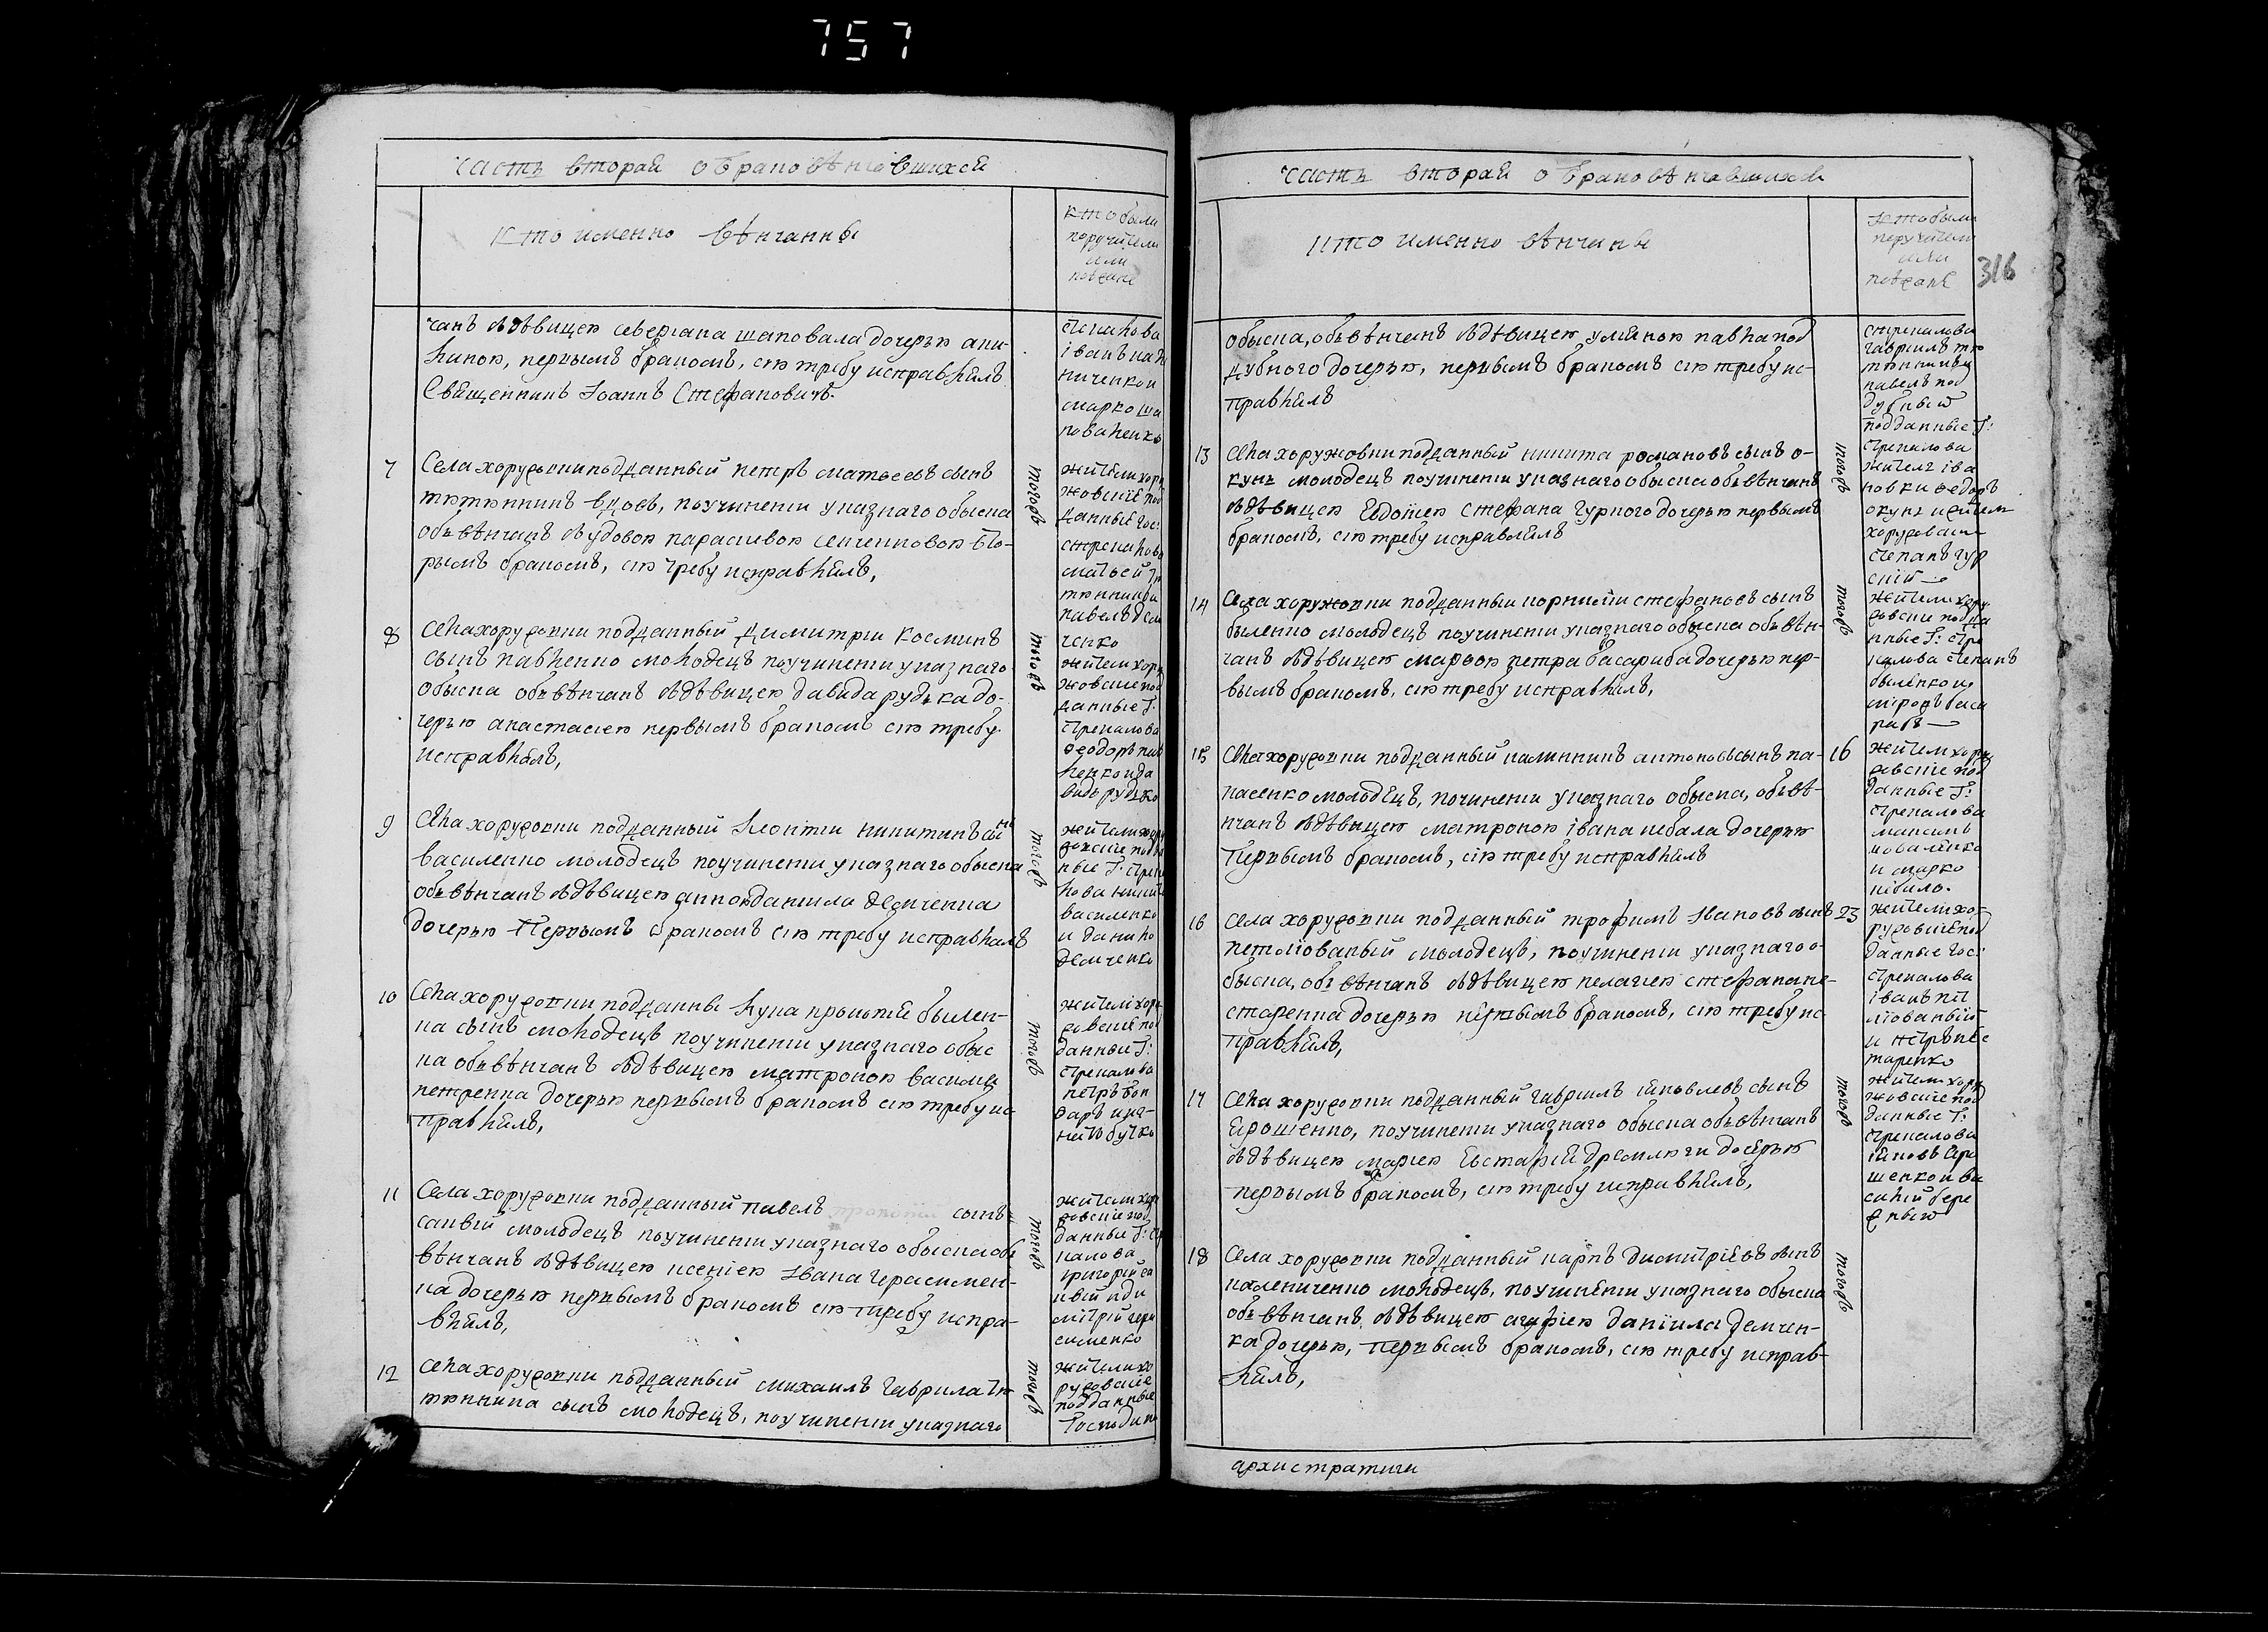 757
часть вторая о браковѣнчавшихся
кто именно вѣнчанны
кто были
поручители
или
поѣзане
чанъ зъ дѣвицею севериана шаповала дочерью аки-
линою, первымъ бракомъ, сию требу исправилъ
Священникъ Іоаннъ Стефановичъ.
іванъ
ниченко и
марко ша
поваленко
7
Села хоружовки подданный петръ матвеевъ сынъ
тютюнникъ вдовъ, по учинении указнаго обыска
обвѣнчанъ зъ удовою параскивою семенковою вто-
рымъ бракомъ, сию требу исправилъ,
тогожъ
жители хору
жовские под
данные гос:
стрекалова
матвей тю
тюнникъ и
павелъ дем
ченко
8
Села хоружовки подданный Димитрий косминъ
сынъ павленко молодецъ по учинении указнаго
обыска обвѣнчанъ зъ дѣвицею давида рудька до-
черью анастасиею первымъ бракомъ сию требу
исправилъ,
тогожъ
жители хору
жовские под
данные Г:
стрекалова
феодоръ пав
ленко и да
видъ рудько
9
Села хоружовки подданный Леонтий никитинъ сынъ
василенко молодецъ по учинении указнаго обыска
обвѣнчанъ зъ дѣвицею анною даниила демченка
дочерью Первымъ бракомъ сию требу исправилъ
тогожъ
жители хору
жовские подда
ные Г: стрека
лова никита
василенко
и данило
демченко
10
Села хоружовки подданны лука прокопия былен-
ка сынъ молодецъ по учинении указнаго обыс
ка обвѣнчанъ зъ дѣвицею матроною василия
петренка дочерью первымъ бракомъ сию требу ис
правилъ,
тогожъ
жители хору
жовские под
данные Г:
стрекалова
петръ бон
даръ и иг-
натъ бутко
11
Села хоружовки подданный павелъ сынъ
савий молодецъ по учинении указнаго обыска об
вѣнчанъ зъ дѣвицею ксениею Ивана герасимен-
ка дочерью первымъ бракомъ сию требу испра-
вилъ,
тогожъ
жители хору
жовские под
данные Г: стре
калова
григорий са
вий и ди
митрий гера
сименко
12
Села хоружовки подданный михаилъ гаврила тю
тюнника сынъ молодецъ, по учинении указнаго
тогожъ
жители хо
ружовские
подданные
Господина
часть вторая о бракованчавшихся
кто именно вѣнчаны
кто были
поручители
или
поѣзане
316
обыска, обвѣнчанъ зъ дѣвицею улияною павла под
дубного дочерью, первымъ бракомъ сию требу ис-
правилъ
стрекалова
гавриилъ тю
тюнникъ и
павелъ под
дубный
подданные Г:
стрекалова
13
Села хоружовки подданный никита романовъ сынъ о-
кунь молодецъ по учинении указнаго обыска обвѣнчанъ
зъ дѣвицею Евдокиею Стефана Гурного дочерью первымъ
бракомъ, сию требу исправилъ
тогожъ
жители ива
новки федоръ
окунь и жители
хоружовски
степанъ гур
ний
14
Села хоружовки подданный корнилий стефановъ сынъ
быленко молодецъ по учинении указнаго обыска обвѣн-
чанъ зъ дѣвицею марфою петра басараба дочерью пер-
вымъ бракомъ, сию требу исправилъ,
тогожъ
жители хору
жовские подда
нные Г: стре
калова степанъ
быленко и
миронъ баса
рабъ
15
Села хоружовки подданный каллиникъ антоновъ сынъ па-
насенко молодецъ, по чинении указнаго обыска, обвѣ-
нчанъ зъ дѣвицею матроною ивана небала дочерью
Первымъ бракомъ, сию требу исправилъ
16
жители хору
жовские под
данные Г:
стрекалова
максимъ
коваленко
и марко
16
Села хоружовки подданный трофимъ Ивановъ сынъ
петлеованый молодецъ, по учинении указнаго о-
быска, обвѣнчанъ зъ дѣвицею пелагиею стефана не-
старенка дочерью первымъ бракомъ, сию требу ис
правилъ,
23
жители хо-
ружовские под
данные гос:
стрекалова
иванъ пет
лиованый
и петръ нес
таренко
17
Села хоружовки подданный гавриилъ іаковлевъ сынъ
Ерошенко, по учинении указнаго обыска обвѣнчанъ
зъ дѣвицею мариею Евстафия дремлюги дочерью
первымъ бракомъ, сию требу исправилъ,
тогожъ
жители хору
жовские под
данные Г:
стрекалова
іаковъ Яро
шенко и ва
силий бере
жный
18
Села хоружовки подданный карпъ димитриевъ сынъ
калениченко молодецъ, по учинении указнаго обыска
обвѣнчанъ зъ дѣвицею агафиею даниила демчен-
ка дочерью, Первымъ бракомъ, сию требу исправ-
вилъ,
тогожъ
архистратиги